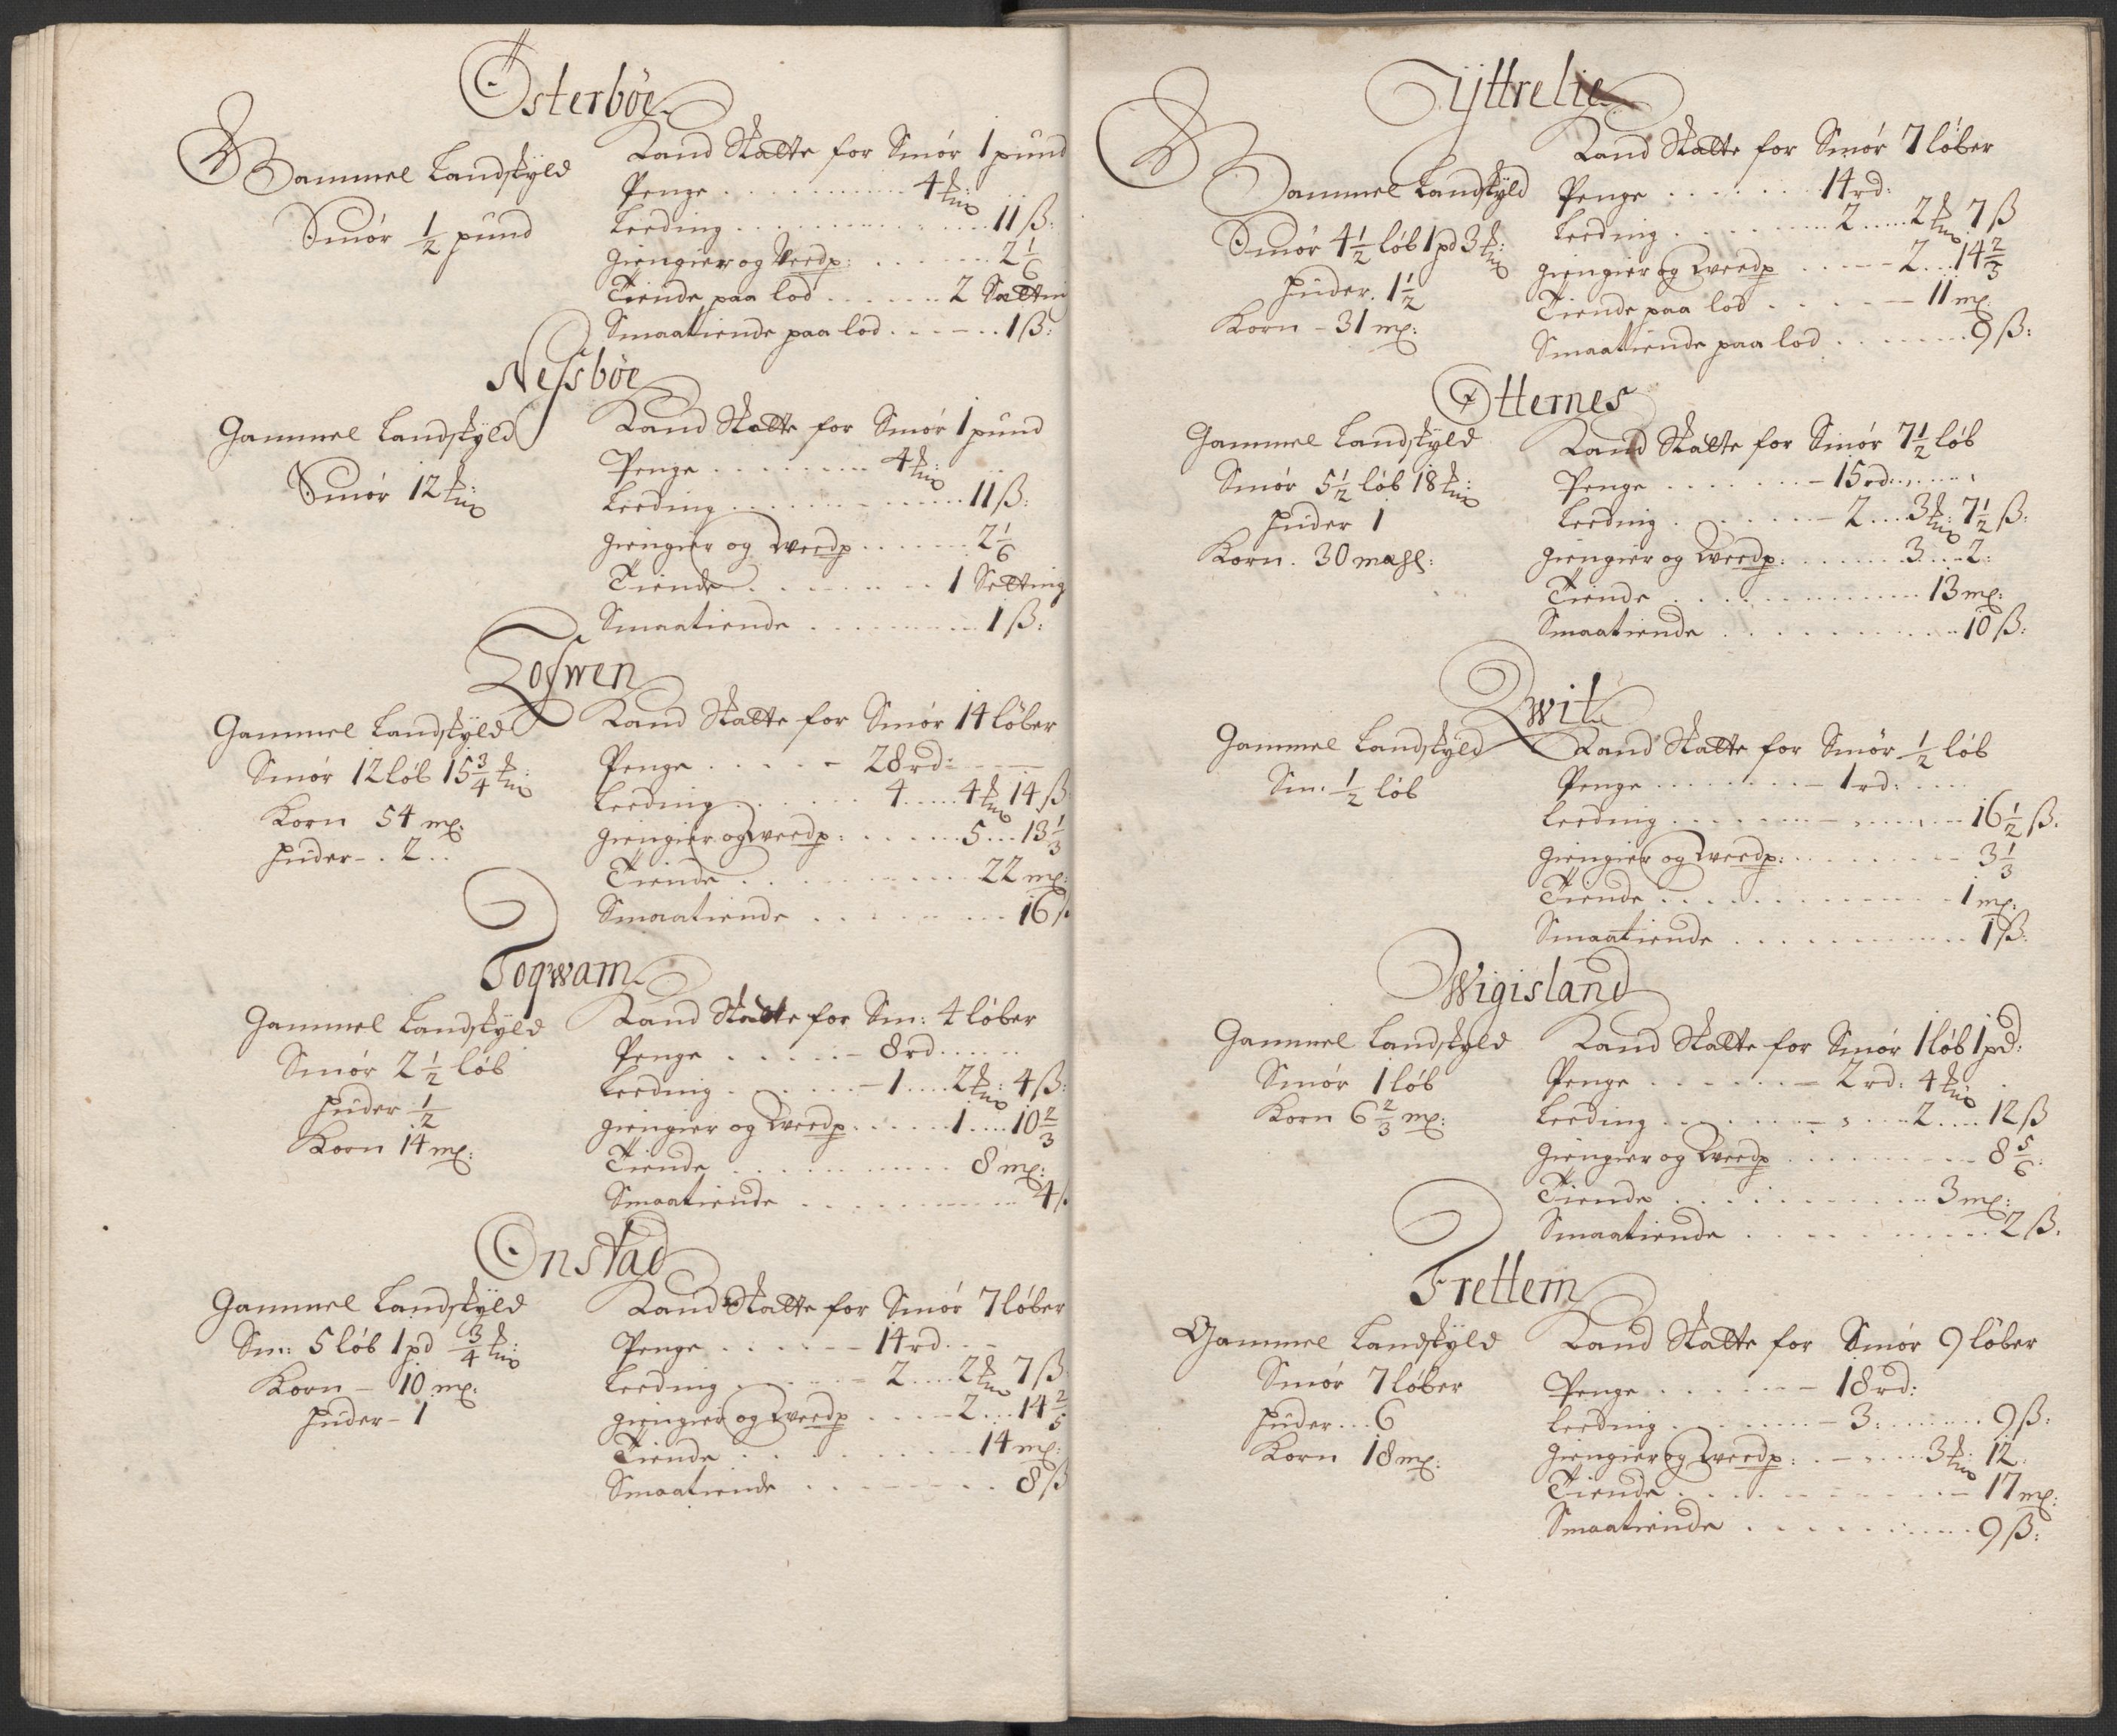 Österbøe
Gammel Landskyld
Smør 1/2 pund
Kand Skatte for Smør 1 pund
Penge . . . . . . . . . . 4 ℔:
Leeding . . . . . . . . . . . . 11 ß:
giengier og Werdp: . . . . . . 2 1/6
Tiende paa lod . . . . . . 2 Setting
Smaatiende paa lod . . . - . . 1 ß:
Nessbøe
Gammel Landskyld
Smør 12 ℔:
Kand Skatte for Smør 1 pund
Penge . . . . . . . . . 4 ℔:
Leeding . . . . . . . . . . . 11 ß:
giengier og Werdp . . . . . . 2 1/6
Tiende . . . . . . . . . 1 Setting
Smaatiende . . . . . . . . . 1 ß:
Lofwen
Gammel Landskyld
Smør 12 løb 15 3/4 ℔:
Korn 54 mℓ:
Huder - . 2 . .
Kand Skatte for Smør 14 løber
Penge . . . . - 28 rd:
Leeding . . . . . . 4 . . . . 4 ℔ 14 ß
giengier og werdp: . . . . . 5 . . . 13 1/3
Tiende . . . . . . . . . . 22 mℓ:
Smaatiende . . . . . . . . 16 ß
Toqwam
Gammel Landskyld
Smør 2 1/2 løb
Huder 1/2
Korn 14 mℓ:
Kand Skatte for Sm: 4 løber
Penge . . . . . - 8 rd . . . . .
Leeding . . . . . . - 1 . . . . 2 ℔: 4 ß:
giengier og Werdp . . . . . 1 . . . . 10 2/3
Tiende . . . . . . . . . . 8 mℓ:
Smaatiende . . . . . . . . . 4 ß
Onstad
Gammel Landskyld
Sm: 5 løb 1 pd 3/4 ℔:
Korn - 10 mℓ:
Huder - 1
Kand Skatte for Smør 7 løber
Penge . . . . . - 14 rd . . -
Leeding . . . . . . - 2 . . . . 2 ℔ 7 ß
giengier og werdp . . . . - 2 . . . 14 2/3
Tiende . . . . . . . . . . 14 mℓ:
Smaatiende . . . . . . . . 8 ß
Yttrelie
Gammel Landskyld
Smør 4 1/2 løb 1 pd 3 ℔:
Huder. 1 1/2
Korn - 31 mℓ:
Kand Skatte for Smør 7 løber
Penge . . . . . . . 14 rd:
Leeding . . . . . . . . 2 . . . . . 2 ℔ 7 ß
giengier og Werdp . . . - - - 2 . . . 14 2/3
Tiende paa lod . . . . . . - 11 mℓ.
Smaatiende paa lod . . . . . . . 9 ß:
Otternes
Gammel Landskyld
Smør 5 1/2 løb 18 ℔:
Huder 1
Korn . 30 maℓ:
Kand Skatte for Smør 7 1/2 løb
Penge . . . . . . . - 15 rd: . . . . .
Leeding . . . . . . . - 2 . . . . 3 ℔: 7 1/2 ß:
giengier og Werdp: . . . . . . 3 . . . . 2:
Tiende . . . . . . . . . . . . 13 mℓ:
Smaatiende . . . . . . . . . . 10 ß:
Qwit
Gammel Landskyld
Sm: 1/2 løb
Kand Skatte for Smør 1/2 løb
Penge . . . . . . . . - 1 rd: . . . .
Leeding . . . . . . . . - . . . . . 16 1/2 ß.
giengier og werdp: . . . . . . . . - 3 1/3
Tiende . . . . . . . . . . . . . 1 mℓ:
Smaatiende . . . . . . . . . . 1 ß.
Wigisland
Gammel Landskyld
Smør 1 løb
Korn 6 2/3 mℓ:
Kand Skatte for Smør 1 løb 1 pd:
Penge . . . . . . . - 2 rd: 4 ℔
Leeding . . . . . . . - . . . . 2 . . . . 12 ß
giengier og Werdp . . . . . . . . . - 8 5/6:
Tiende . . . . . . . . . . . 3 mℓ:
Smaatiende . . . . . . . . . . 2 ß.
Frettem
Gammel Landskyld
Smør 7 løber
Huder . . . 6
Korn 18 mℓ:
Kand Skatte for Smør 9 løber
Penge . . . . . . - 18 rd:
Leeding . . . . . . . - 3: . . . . . . . 9 ß:
giengier og werdp: . - . . . . 3 ℔: 12.
Tiende . . . . . . . . . . . - 17 mℓ:
Smaatiende . . . . . . . . . . 9 ß: